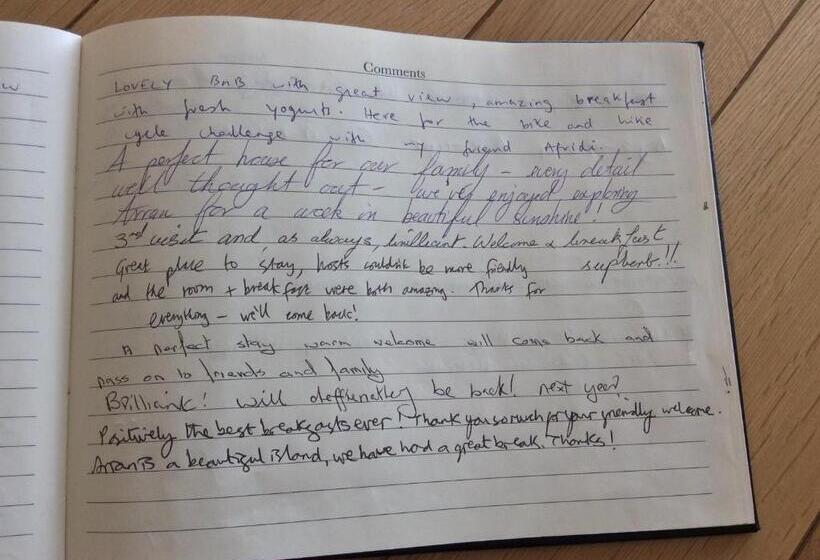 w
Comments
LOVELY BnB with great view, amazing breakfast
with fresh yogurts. Here for the bike and hike
cycle challenge with my friend Afridi.
A perfect house for our family – every detail
well thought out – we've enjoyed exploring
Arran for a week in beautiful sunshine!!
3rd visit and, as always, brilliant. Welcome & breakfast
superb!!!
Great place to stay, hosts couldn't be more friendly
and the room + breakfast were both amazing. Thanks for
everything – we'll come back!
A perfect stay warm welcome will come back and
pass on to friends and family
Brilliant! will deffienatley be back! next year
Positively the best breakfasts ever! Thank you so much for your friendly welcome.
Arran is a beautiful island, we have had a great break. Thanks!